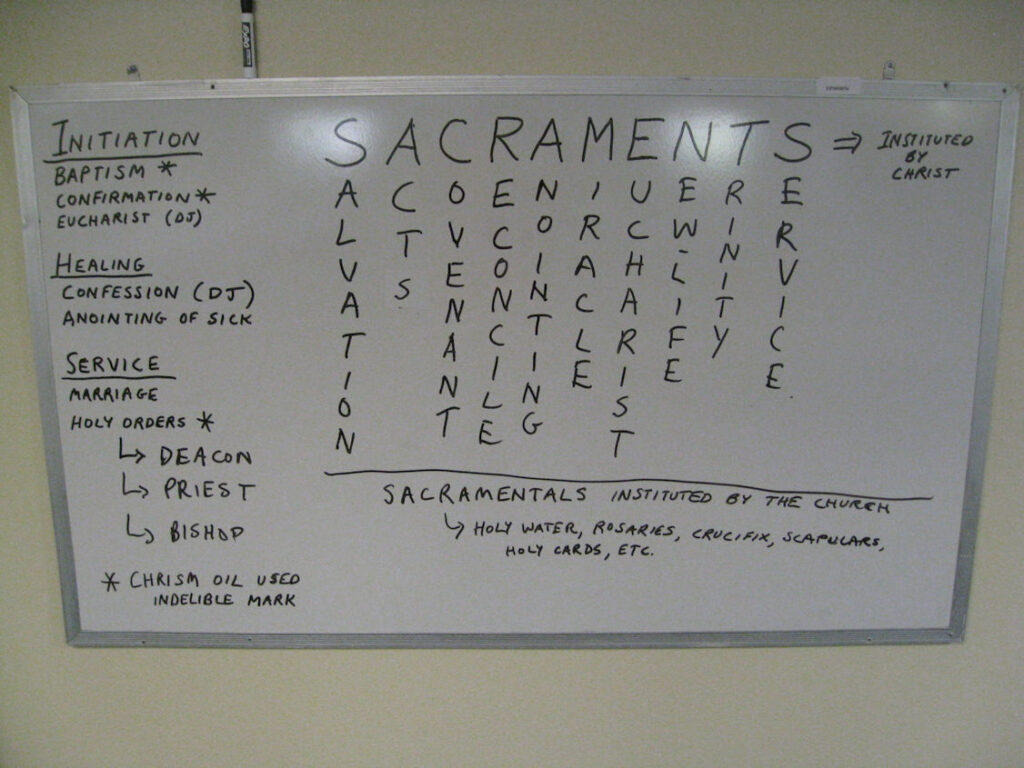 INITIATION
BAPTISM *
CONFIRMATION *
EUCHARIST (DJ)
HEALING
CONFESSION (DJ)
ANOINTING OF SICK
SERVICE
MARRIAGE
HOLY ORDERS *
↳ DEACON
↳ PRIEST
↳ BISHOP
* CHRISM OIL USED
INDELIBLE MARK
SACRAMENTS ⇒ INSTITUTED
BY
CHRIST
ALVATION
CTS
OVENANT
ECONCILE
NOINTING
IRACLE
UCHARIST
EW-LIFE
RINITY
ERVICE
SACRAMENTALS INSTITUTED BY THE CHURCH
↳ HOLY WATER, ROSARIES, CRUCIFIX, SCAPULARS,
HOLY CARDS, ETC.